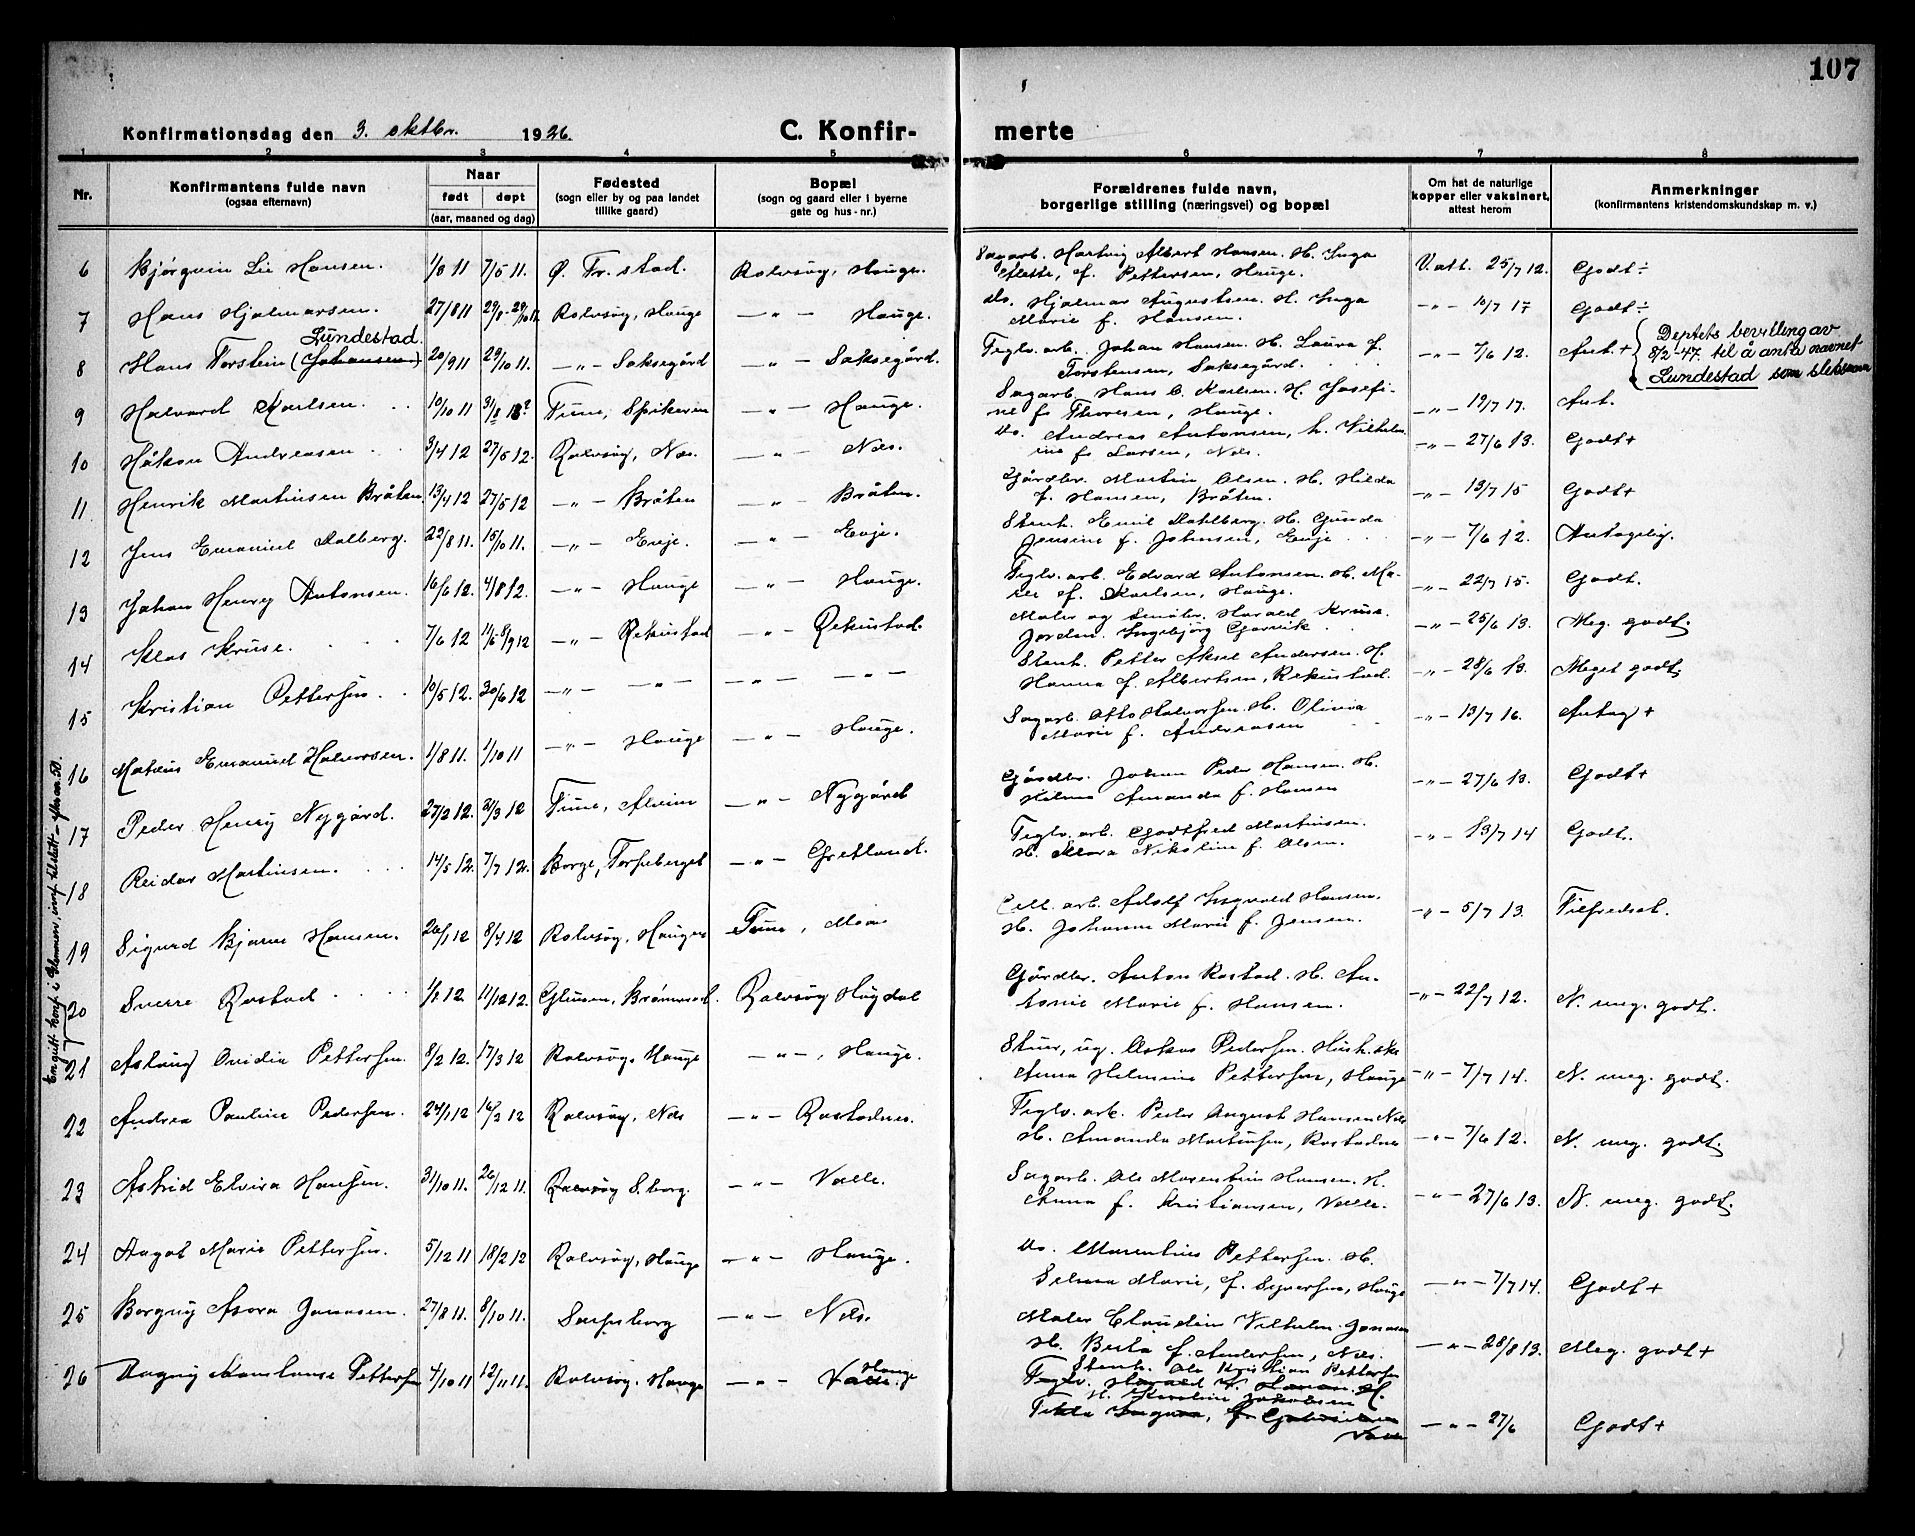 107
Konfirmationsdag den 3. oktbr. 1926.
C. Konfir-
merte
1 2 3 4 5 6 7 8
Nr.
Konfirmantens fulde navn
(ogsaa efternavn)
Naar
født døpt
(aar, maaned og dag)
Fødested
(sogn eller by og paa landet
tillike gaard)
Bopæl
(sogn og gaard eller i byerne
gate og hus-nr.)
Forældrenes fulde navn,
borgerlige stilling (næringsvei) og bopæl
Om hat de naturlige
kopper eller vaksinert,
attest herom
Anmerkninger
(konfirmantens kristendomskundskap m. v.)
6 Bjørgvin Lie Hansen. 1/8 11 7/5 11. Ø. Fr.stad. Rolvsøy, Hauge. Sagarb. Hartvig Albert Hansen. H. Inga
Mette, f. Pettersen, Hauge. V. att. 25/7 12. Godt ÷
7 Hans Hjalmarsen. 27/8 11 Rolvsøy, Hauge — " — Hauge. Do. Hjalmar Augustsen. H. Inga
Marie f. Hansen. — " — 10/7 17 Godt ÷
Lundestad.
8 Hans Torstein (Johansen) 20/9 11 29/10 11. — " — Saksegård — " — Saksegård. Teglv. arb. Johan Hansen. H. Laura f.
Torstensen, Saksegård. — " — 7/6 12. Ant. +
Deptets bevilling av
8/2-47. til å anta navnet
Lundestad som slektsnavn
9 Halvard Karlsen. 10/10 11 Tune, Spikeren — " — Hauge. Sagarb. Hans C. Karlsen. H. Josefi-
ne f. Thoresen, Hauge. — " — 19/7 17. Ant.
10 Håkon Andreasen 3/4 12 27/5 12. Rolvsøy, Nes. — " — Nes. Do. Andreas Antonsen, h. Vilhelm
ine f. Larsen, Nes. — " — 27/6 13. Godt +
11 Henrik Martinsen Bråten. 13/4 12 27/5 12 — " — Bråten — " — Bråten. Gårdbr. Martin Olsen. H. Hilda
f. Hansen, Bråten. — " — 13/7 15 Godt +
12 Jens Emanuel Dalberg. 22/8 11. 15/10 11. — " — Evje. — " — Evje. Stenh. Emil Dahlberg. H. Gunda
Jensine f. Johnsen, Evje — " — 7/6 12. Antagelig.
13 Johan Henry Antonsen. 16/6 12. 4/8 12. — " — Hauge — " — Hauge. Teglv. arb. Edvard Antonsen. H. Ma-
rie f. Karlsen, Hauge. — " — 22/7 15. Godt.
14 Klas Kruse. 7/6 12 — " — Rekustad — " — Rekustad. Maler og Småbr. Harald Kruse.
Jordm. Ingebjørg Gjervik — " — 25/6 13. Meg. godt.
15 Kristian Pettersen. 10/5 12. 30/6 12 — " — — " — — " — — " — Stenh. Petter Aksel Andersen. H.
Hanna f. Albertsen, Rekustad. — " — 28/6 13. Meget godt
16 Mateus Emanuel Halvorsen. 1/8 11. 1/10 11 — " — Hauge — " — Hauge. Sagarb. Otto Halvorsen. H. Olivia
Marie f. Andreasen — " — 13/7 16. Antag +
17 Peder Henry Nygård. 27/2 12. 31/3 12 Tune, Alvim — " — Nygård Gårdbr. Johan Peder Hansen. H.
Hilma Amanda f. Hansen — " — 27/6 13. Godt +
18 Reidar Martinsen. 14/5 12. 7/7 12. Borge, Torpeberget — " — Gretland. Teglv. arb. Godtfred Martinsen.
H. Klara Nikoline f. Olsen. — " — 13/7 14 Godt.
19 Sigurd Bjarne Hansen. 26/1 12 8/4 12 Rolvsøy, Hauge Tune, Moa Cell. arb. Adolf Ingvald Hansen.
H. Johanne Marie f. Jensen. — " — 5/7 13. Tilfredsst.
20 Sverre Rostad 11/12 12. Glemmen, Rolvsøy Høgdal Gårdbr. Anton Rostad. H. An-
tonie Marie f. Hansen. — " — 22/7 12. N. meg. godt.
21 Aslaug Ovidia Pettersen 8/2 12. 17/3 12 Rolvsøy, Hauge — " —, Hauge. Stuer, ug. Oskar Pedersen. Hush.ske
Anna Helmine Pettersen, Hauge — " — 7/7 14. N. meg. godt.
22 Andrea Pauline Pedersen. 24/1 12 Rolvsøy, Nes — " — Rostadnes. Teglv. arb. Peder August Hansen Nes
H. Amanda Martinsen, Rostadnes — " — 7/6 12. N. meg. godt.
23 Astrid Elvira Hansen. 31/10 11. 26/12 11. Rolvsøy S. borg. — " — Valle. Sagarb. Ole Marentius Hansen. H.
Anna f. Kristiansen, Valle. — " — 27/6 13. N. meg. godt.
24 Aagot Marie Pettersen. 5/12 11 18/2 12 Rolvsøy, Hauge — " — Hauge. Do. Marentius Pettersen. H.
Selma Marie, f. Syversen, Hauge — " — 7/7 14. Godt +
25 Borgny Asora Jonassen. 27/8 11. 8/10 11. Sarpsborg — " — Nes. Maler Claudin Vilhelm Jonassen
H. Berta f. Andersen, Nes. — " — 28/8 13. Meg. godt +
26 Dagny Konstanse Pettersen 4/10 11 12/11 11. Rolvsøy, Hauge — " — Valle. Hauge
Stenh. Ole Kristian Pettersen
Teglv. Harald H.
H. Karoline Jakobsen
Tekla — " — 27/6 Godt +
Valle